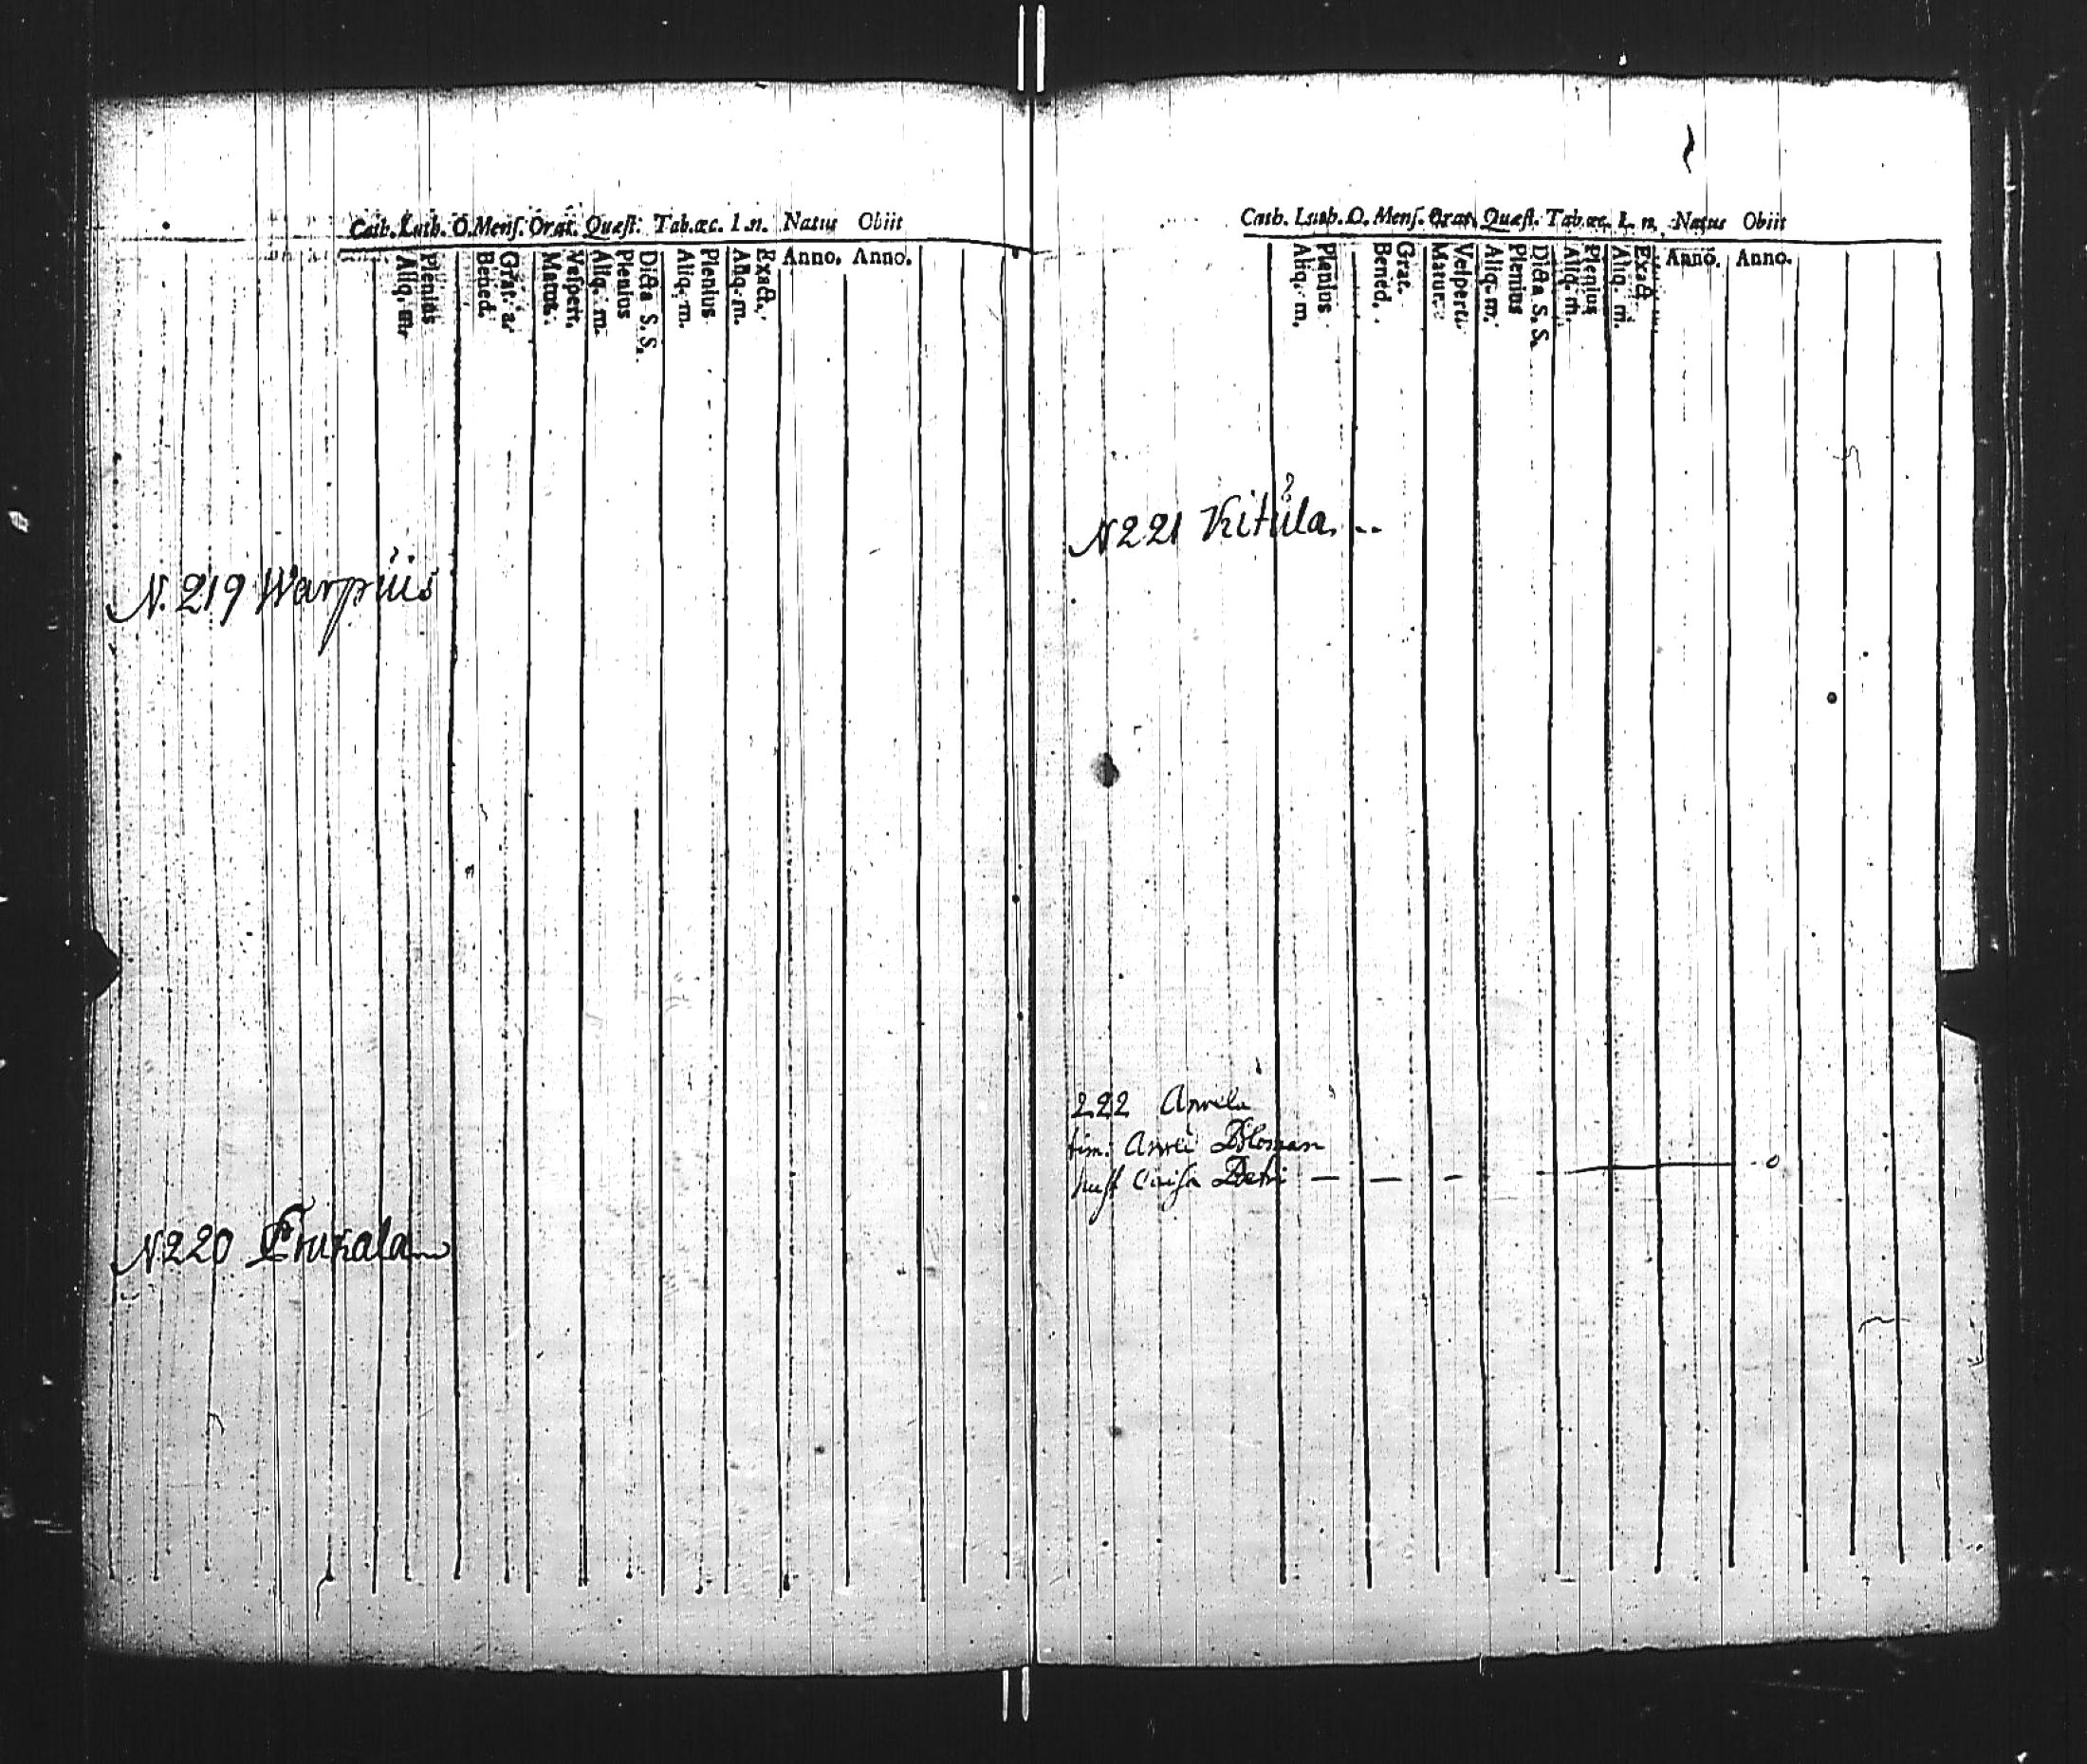 Cath. Luth. O. Mens. Orat. Quæst. Tab. æc. l. n. Natus Obiit
Aliq. m. Plenius Bened. Grat. a. Matut. Vespert. Aliq. m. Plenius Dicta S. S. Aliq. m. Plenius Aliq. m. Exact. Anno. Anno.
N. 219 Warpius
N 220
Cath. Luth. O. Mens. Orat. Quæst. Tab. æc. l. n. Natus Obiit
Aliq. m. Plenius Bened. Grat. Matut. Vespert. Aliq. m. Plenius Dicta S. S. Aliq. m. Plenius Aliq. m. Exact. Anno. Anno.
N 221 Kitula
222 Arvela